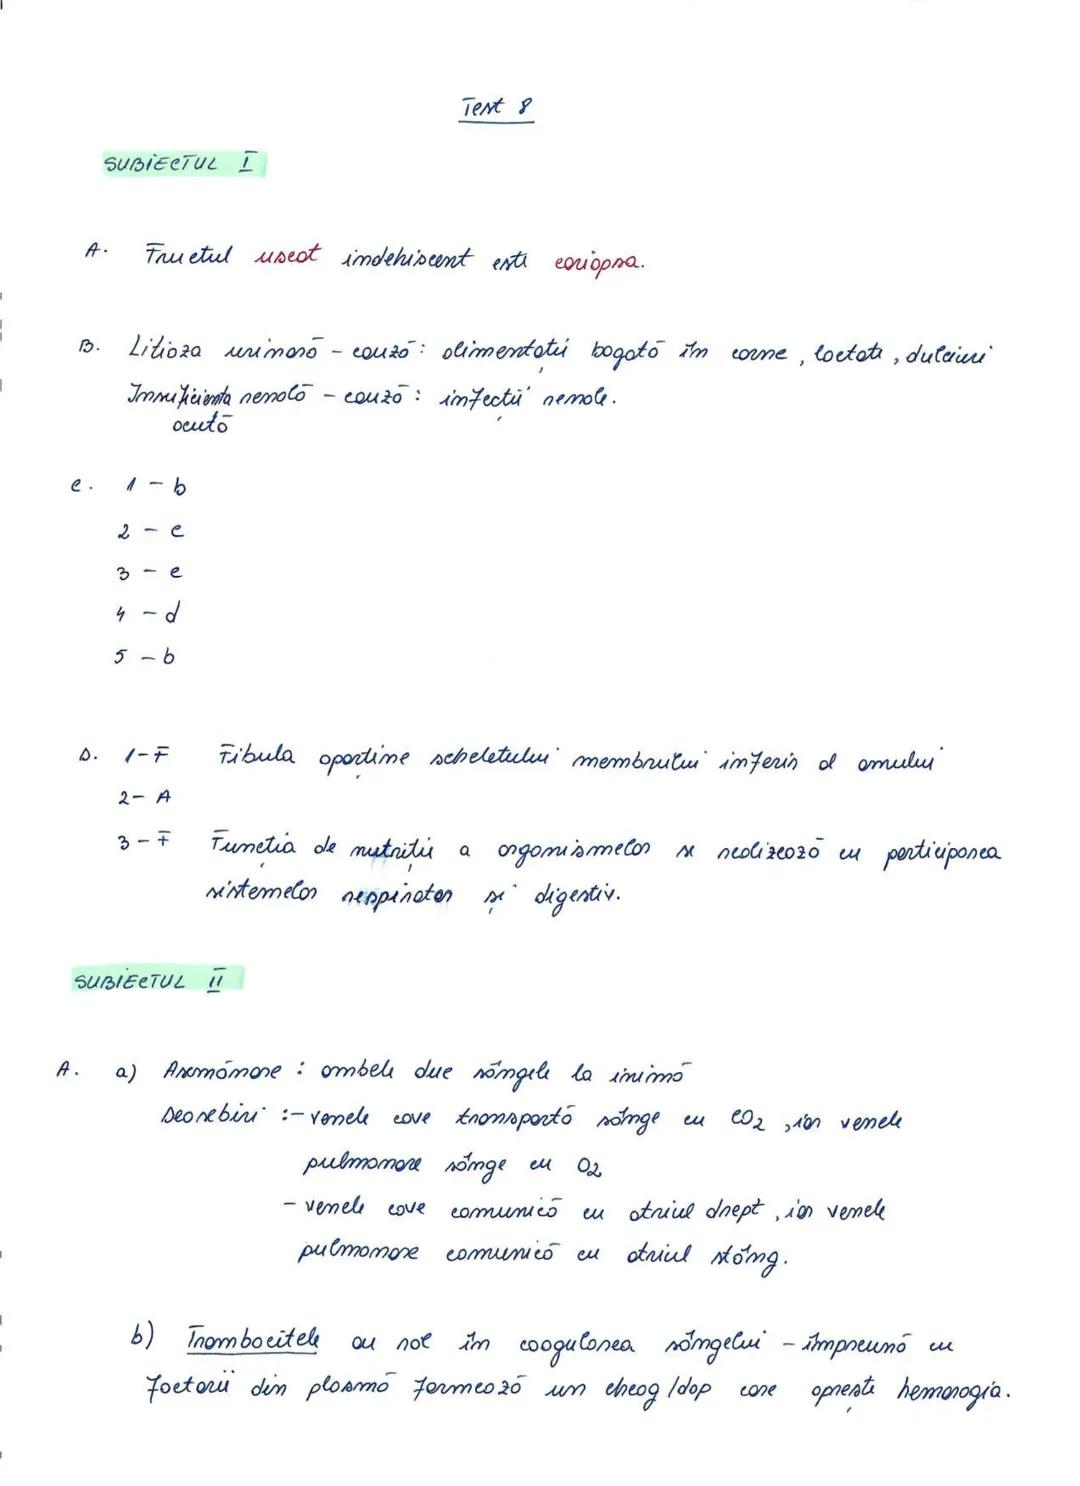 Test 8
SUBIECTUL I
A. Fructul uscat indehiscent este cariopsa.
B. Litiaza urinară - cauză: alimentații bogată în carne, lactate, dulciuri
Insuficiența renală - cauză: infecții renale.
acută
C. 1 - b
2 - c
3 - c
4 - d
5 - b
D. 1-F Fibula aparține scheletului membrului inferior al omului
2- A
3 - F Funcția de nutriție a organismelor se realizează cu participarea
sistemelor respirator și digestiv.
SUBIECTUL II
A. a) Asemănare : ambele duc sângele la inimă
Deosebiri :- venele cave transportă sânge cu CO2, iar venele
pulmonare sânge cu O2
- venele cave comunică cu atriul drept, iar venele
pulmonare comunică cu atriul stâng.
b) Trombocitele au rol în coagularea sângelui - împreună cu
factorii din plasmă formează un cheag/dop care oprește hemoragia.